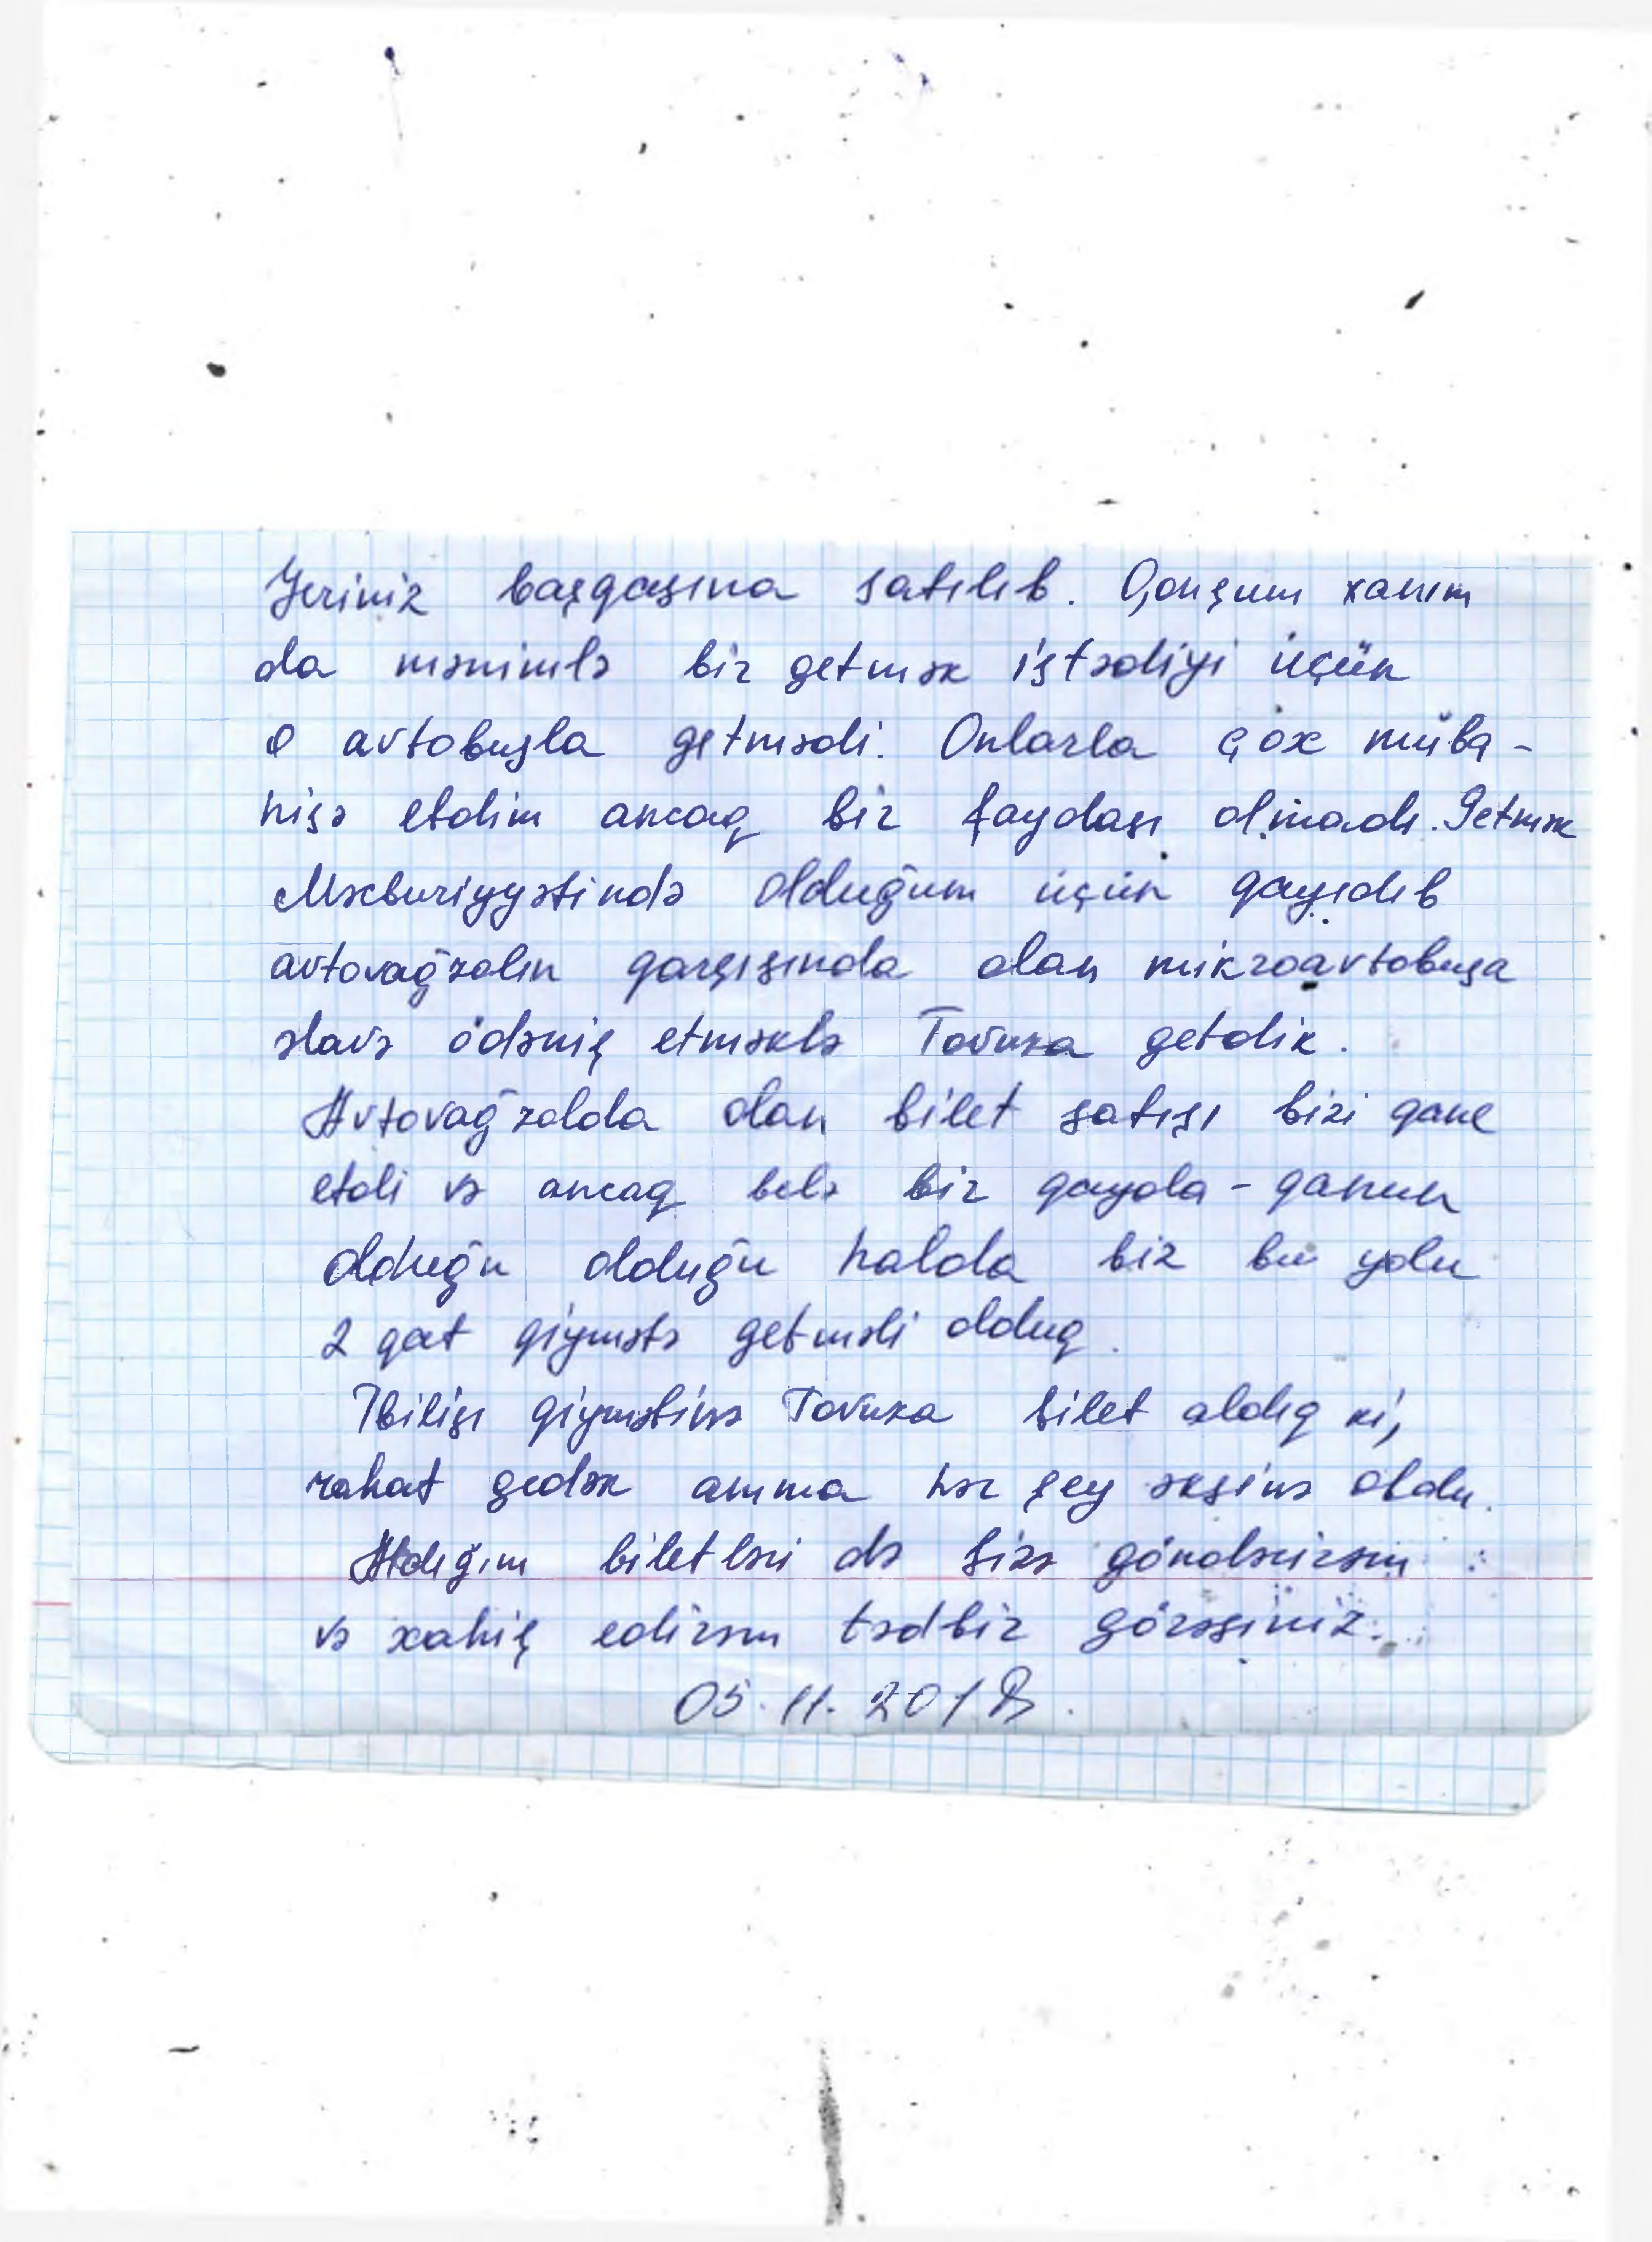 Yeriniz başqasına satılıb. Qonşum xanım
da mənimlə bir getmək istədiyi üçün
o avtobusla getmədi. Onlarla çox müba-
hisə etdim ancaq bir faydası olmadı. Getmək
Məcburiyyətində olduğum üçün qayıdıb
avtovağzalın qarşısında olan mikroavtobusa
əlavə ödəniş etməklə Tovuza getdik.
Avtovağzalda olan bilet satışı bizi qane
etdi və ancaq belə bir qayda-qanun
olduğu olduğu halda biz bu yolu
2 qat qiymətə getməli olduq.
Tbilisi qiymətinə Tovuza bilet aldıq ki,
rahat gedək amma hər şey əksinə oldu.
Aldığım biletləri də Sizə göndərirəm
və xahiş edirəm tədbir görəsiniz.
05.11.2018.